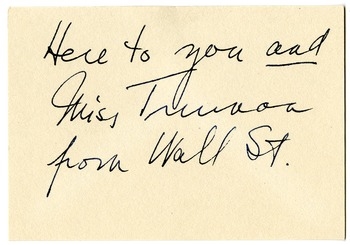 Here to you and
Miss Truman
from Wall St.